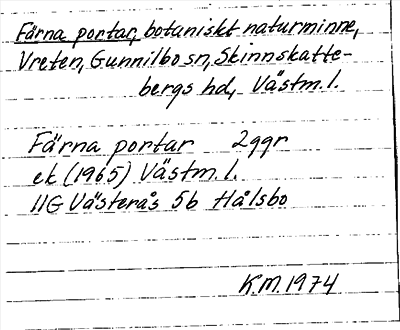 Färna portar, botaniskt naturminne,
Vreten, Gunnilbo sn, Skinnskatte-
bergs hd, Västm.l.
Färna portar 2ggr
ek (1965) Västm.l.
11G Västerås 5b Hålsbo
K.M.1974